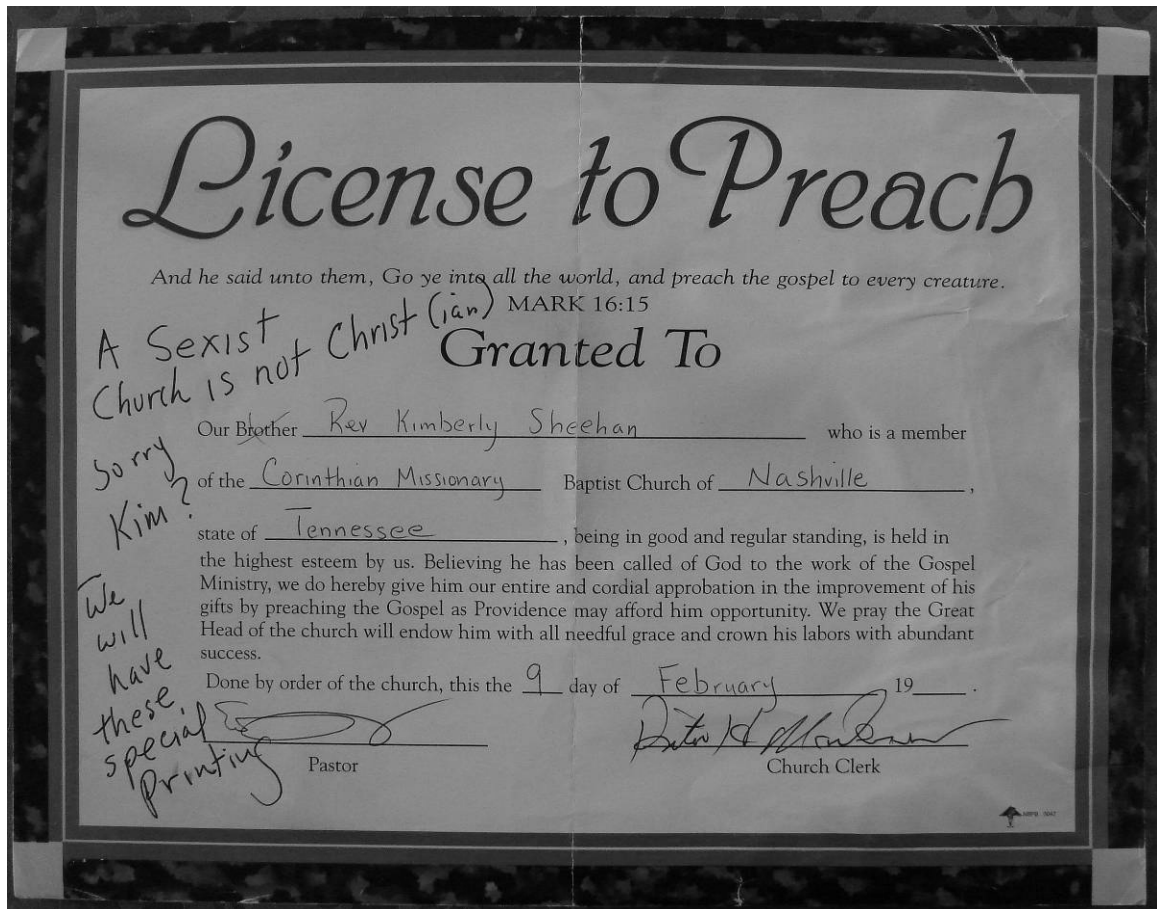 License to Preach
And he said unto them, Go ye into all the world, and preach the gospel to every creature.
MARK 16:15
Granted To
A Sexist
Church is not Christ (ian)
Sorry
Kim?
We
will
have
these
special
printing
Our Brother Rev Kimberly Sheehan who is a member
of the Corinthian Missionary Baptist Church of Nashville,
state of Tennessee, being in good and regular standing, is held in
the highest esteem by us. Believing he has been called of God to the work of the Gospel
Ministry, we do hereby give him our entire and cordial approbation in the improvement of his
gifts by preaching the Gospel as Providence may afford him opportunity. We pray the Great
Head of the church will endow him with all needful grace and crown his labors with abundant
success.
Done by order of the church, this the 9 day of February 19 .
Pastor
Church Clerk